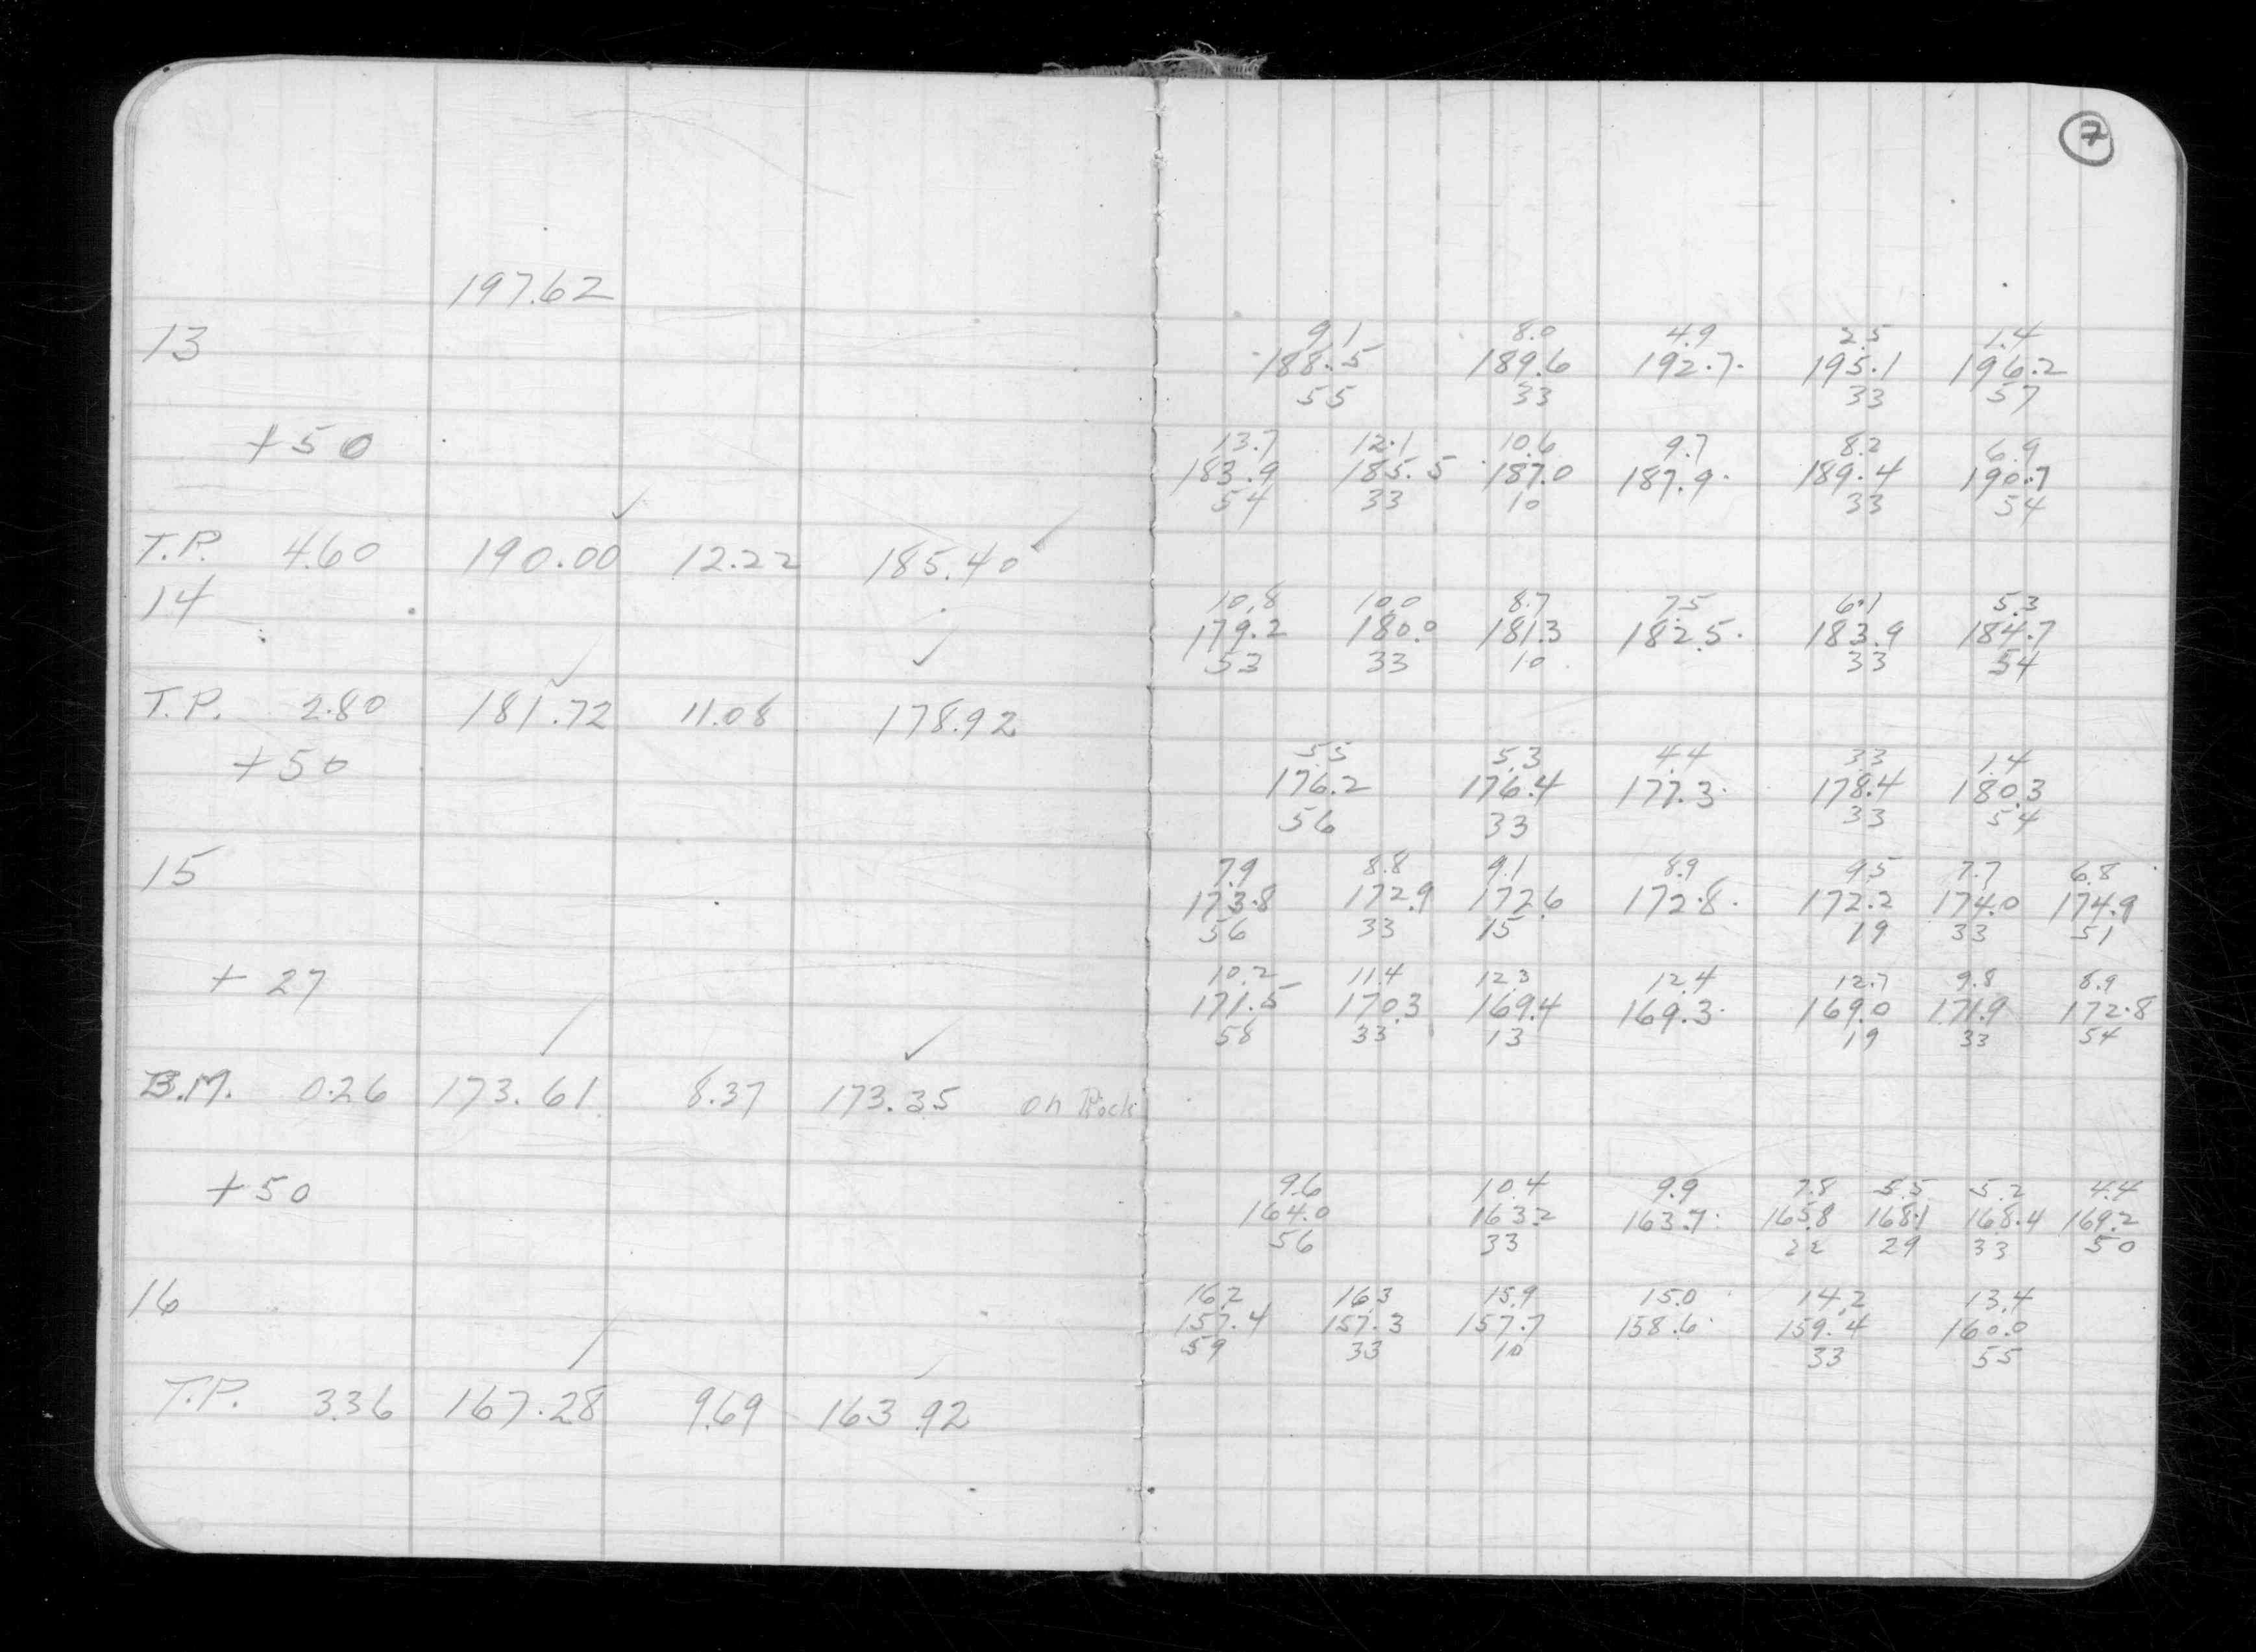 7
197.62
13
9.1 8.0 4.9 2.5 1.4
188.5 189.6 192.7 195.1 196.2
55 33 33 57
+50
13.7 12.1 10.6 9.7 8.2 6.9
183.9 185.5 187.0 187.9 189.4 190.7
54 33 10 33 54
T.P. 4.60 190.00 12.22 185.40
14
10.8 10.0 8.7 7.5 6.1 5.3
179.2 180.0 181.3 182.5 183.9 184.7
53 33 10 33 54
T.P. 2.80 181.72 11.08 178.92
+50
5.5 5.3 4.4 3.3 1.4
176.2 176.4 177.3 178.4 180.3
56 33 33 54
15
7.9 8.8 9.1 8.9 9.5 7.7 6.8
173.8 172.9 172.6 172.8 172.2 174.0 174.9
56 33 15 19 33 51
+ 27
10.2 11.4 12.3 12.4 12.7 9.8 8.9
171.5 170.3 169.4 169.3 169.0 171.9 172.8
58 33 13 19 33 54
B.M. 0.26 173.61 8.37 173.35 on Rock
+50
9.6 10.4 9.9 7.8 5.5 5.2 4.4
164.0 163.2 163.7 165.8 168.1 168.4 169.2
56 33 22 29 33 50
16
16.2 16.3 15.9 15.0 14.2 13.4
157.4 157.3 157.7 158.6 159.4 160.0
59 33 10 33 55
T.P. 3.36 167.28 9.69 163.92